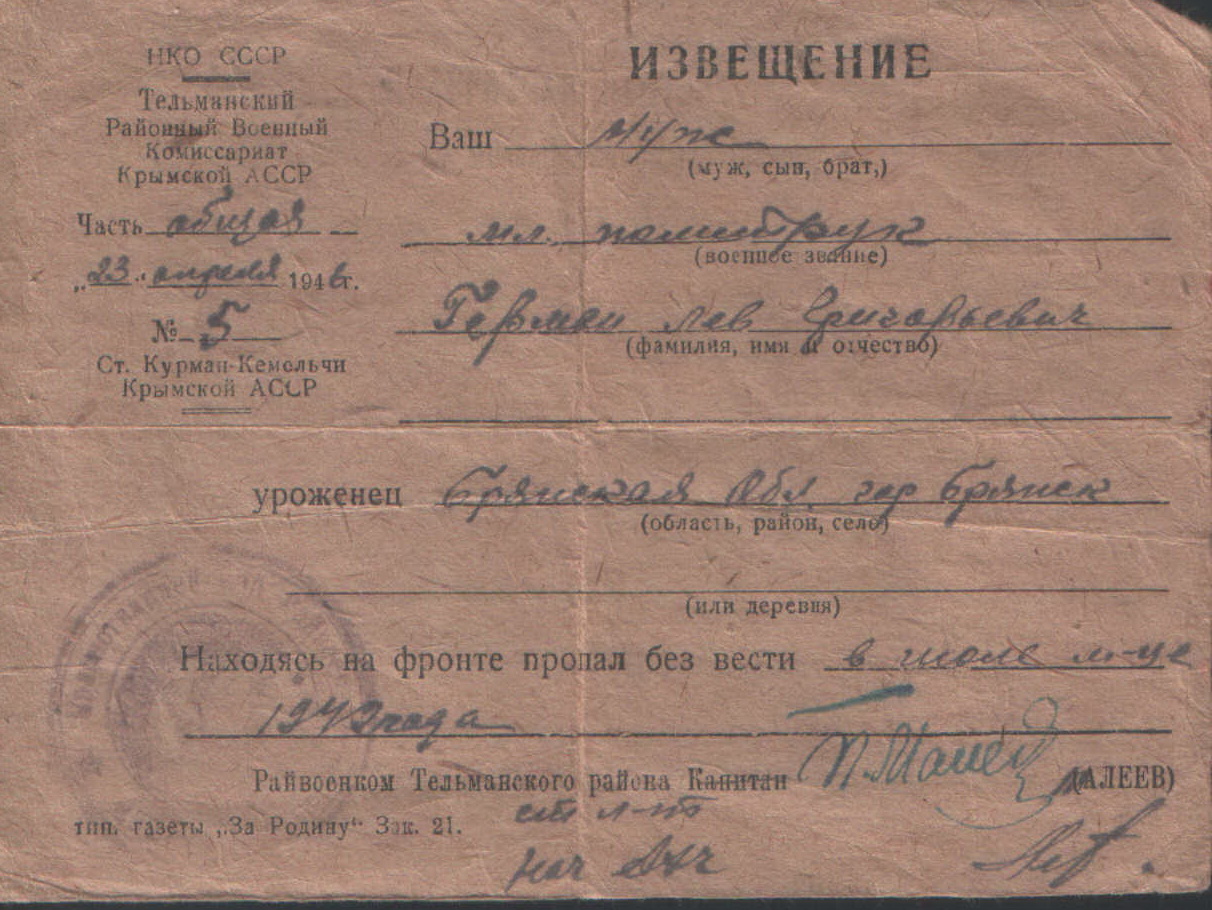 НКО СССР
Тельманский
Районный Военный
Комиссариат
Крымской АССР
Часть общая
„23“ апреля 1946г.
№ 5
Ст. Курман-Кемельчи
Крымской АССР
ИЗВЕЩЕНИЕ
Ваш муж
(муж, сын, брат,)
мл. политрук
(военное звание)
Герман Лев Григорьевич
(фамилия, имя и отчество)
уроженец Брянская Обл. гор Брянск
(область, район, село)
(или деревня)
Находясь на фронте пропал без вести в июле м-це
1942 года
Райвоенком Тельманского района Капитан (АЛЕЕВ)
ст л-т
нач
тип. газеты „За Родину“ Зак. 21.